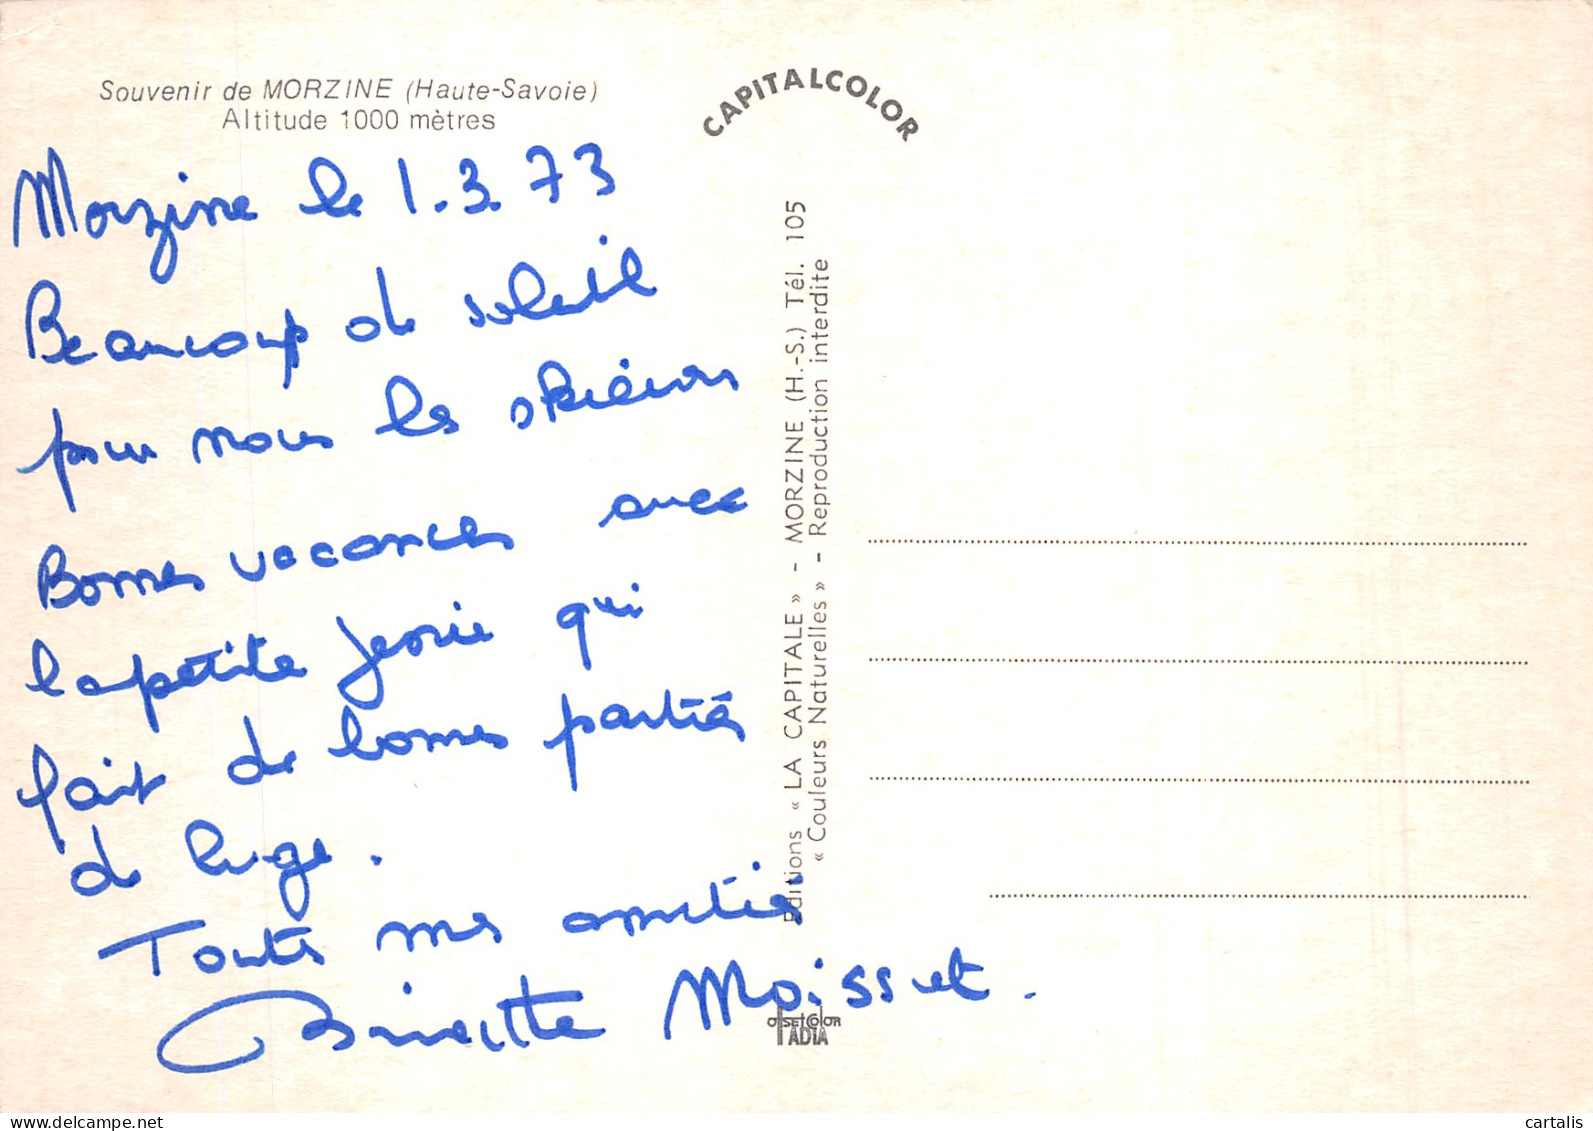 Souvenir de MORZINE (Haute-Savoie)
Altitude 1000 mètres
CAPITALCOLOR
Morzine le 1.3.73
Beaucoup de soleil
pour nous les skieurs
Bonnes vacances avec
la petite qui
fait de bonnes parties
de luge.
Toutes mes amitiés
Moisset.
Editions « LA CAPITALE » - MORZINE (H.-S.) Tél. 105
« Couleurs Naturelles » - Reproduction interdite
OFFSET COLOR
PADIA
delcampe.net
cartalis